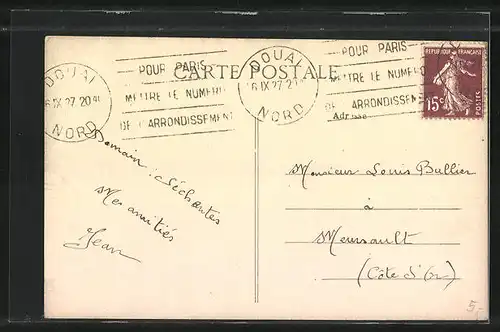 DOUAI
6 IX 27 20
NORD
POUR PARIS
METTRE LE NUMERO
DE L'ARRONDISSEMENT
DOUAI
6 IX 27 20
NORD
POUR PARIS
METTRE LE NUMERO
ARRONDISSEM
REPUBLIQUE FRANÇAISE
15c
POSTES
CARTE POSTALE
Adresse
Demain :
Mes amitiés
Jean
Monsieur Louis Bullier
à
Meursault
(Côte d'Or)
5.-